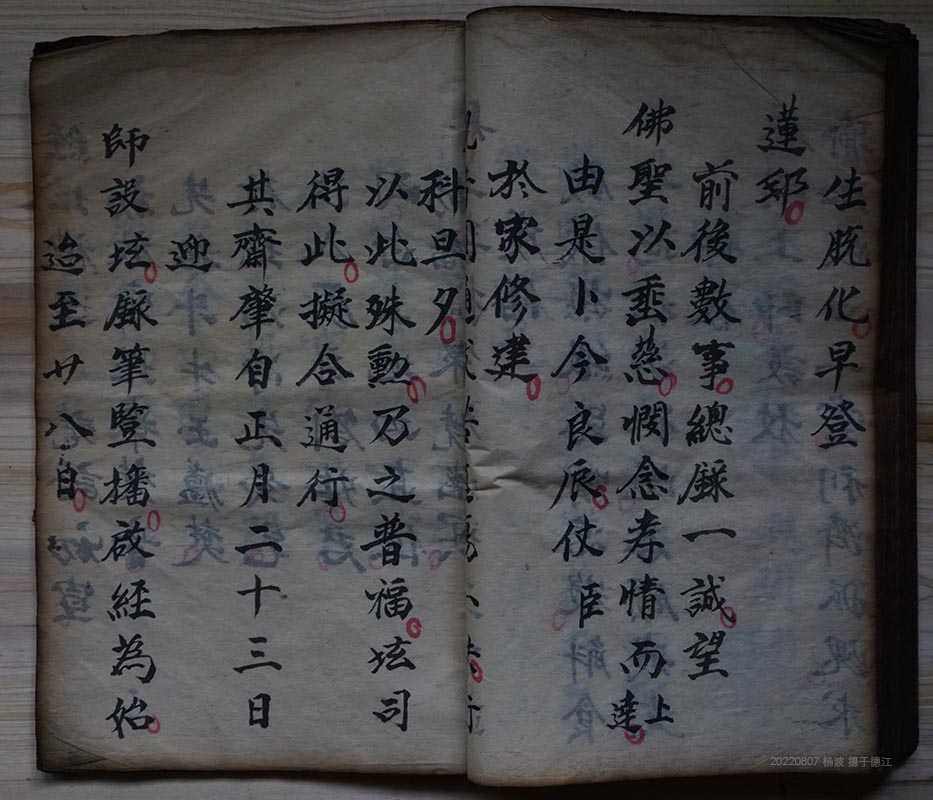 生脱化早登
蓮邸
前後數事總錄一誠望
佛聖以垂慈憫念孝情而上達
由是卜今良辰仗臣
於家修建
科旦夕
以此殊勳乃之普福坛司
得此擬合通行
其齋肇自正月二十三日
迎
師設坛錄筆竪播啟經為始
迨至廿八日
20220807 杨波 摄于德江